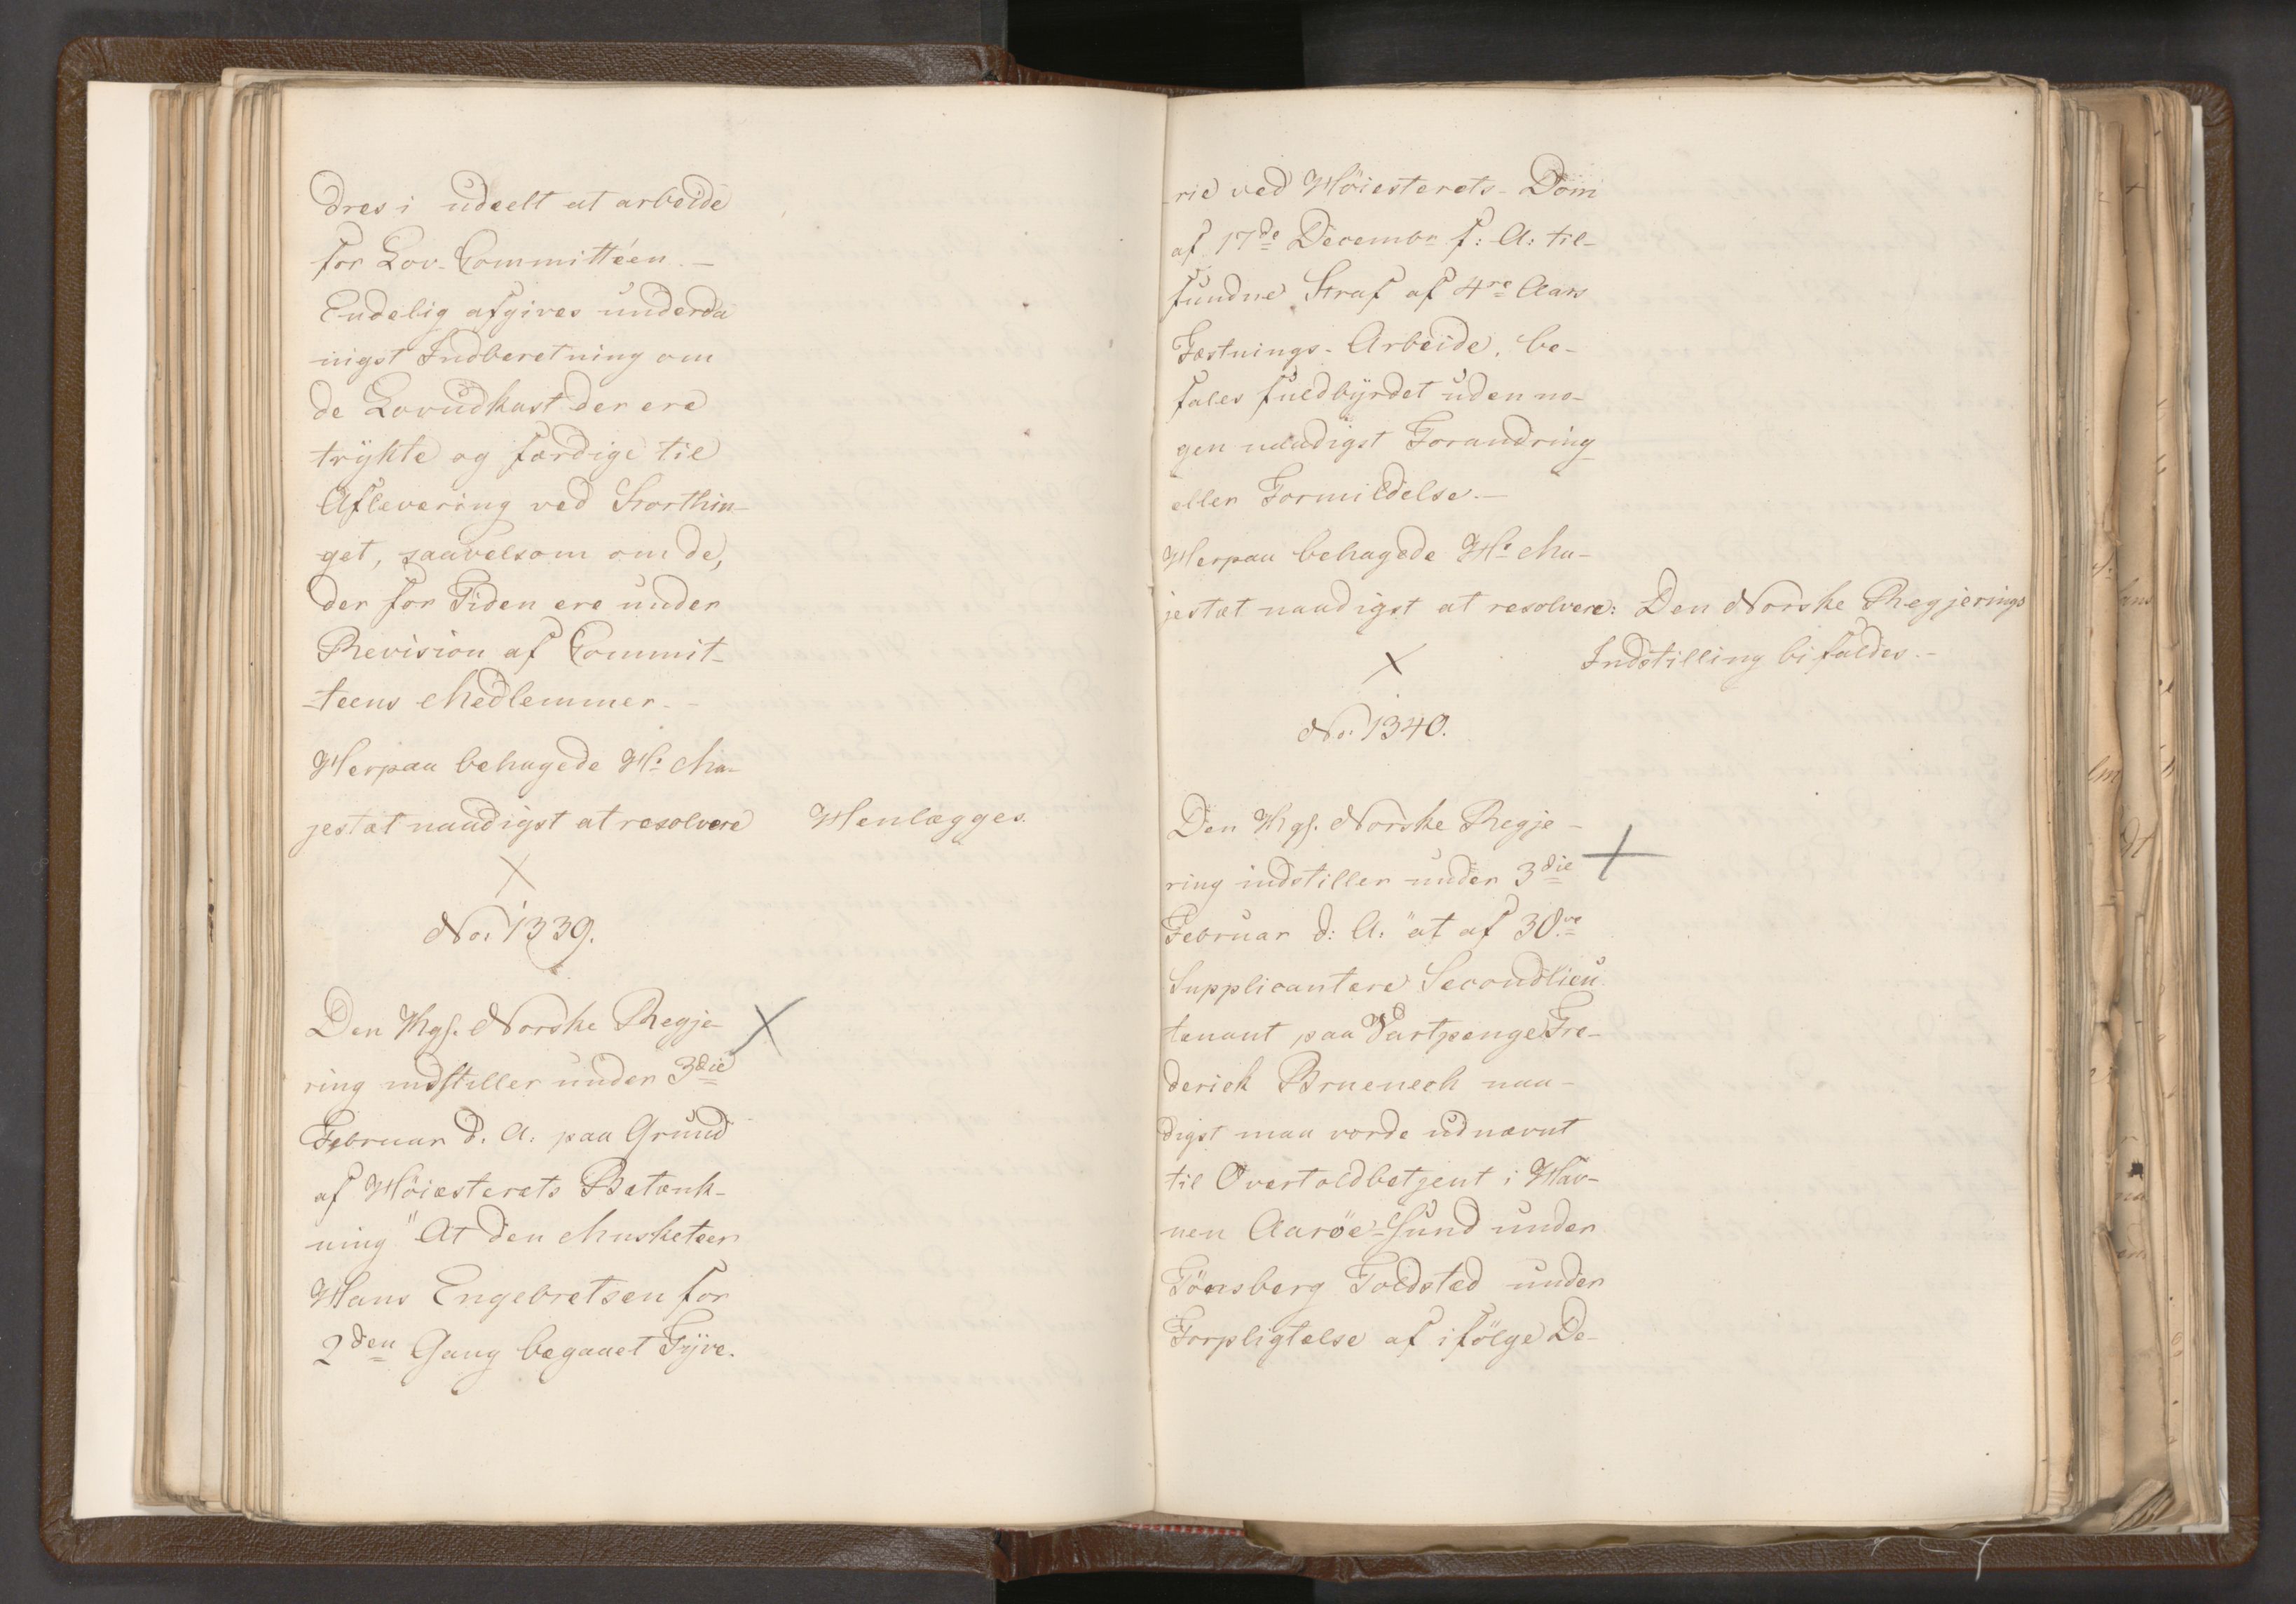 dres i udeelt at arbeide
for Lov-Committéen. —
Endelig afgives underda
nigst Indberetning om
de Lovudkast der ere
trykte og færdige til
Aflevering ved Storthin-
get, saavelsom om de,
der for Tiden ere under
Revision af Commit-
teens Medlemmer. -
Herpaa behagede Hs Ma-
jestæt naadigst at resolvere Henlægges.
No. 1339.
Den Kgl. Norske Regje-
ring indstiller under 3die
Februar d. A. paa Grund
af Höiesterets Betænk-
ning "At den Musketeer
Hans Engebretsen for
2den Gang begaaet Tyve-
rie ved Höiesterets-Dom
af 17de Decembr f: A: til-
fundne Straf af 4re Aars
Fæstnings-Arbeide, be-
fales fuldbyrdet uden no-
gen naadigst Forandring
eller Formildelse. —
Herpaa behagede Hs Ma-
jestæt naadigst at resolvere: Den Norske Regjerings
Indstilling bifaldes. -
No. 1340.
Den Kgl. Norske Regje-
ring indstiller under 3die
Februar d: A: "at af 30ve
Supplicantere Secondlieu
tenant paa Vartpenge Fre-
derick Bruenech naa-
digst maa vorde udnævnt
til Overtoldbetjent i Hav-
nen Aaröe-Sund under
Tönsberg Toldsted under
Forpligtelse af ifölge De-